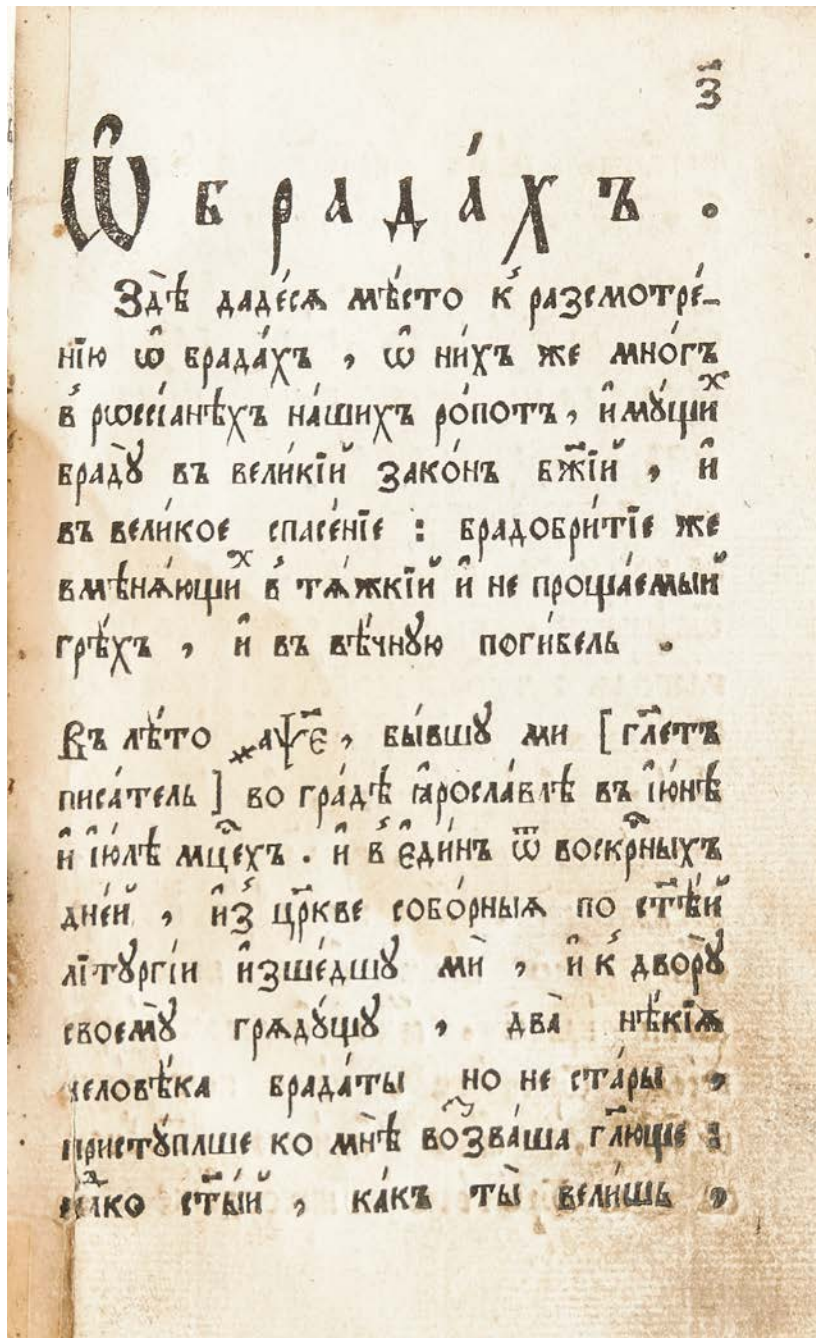 з҃
Ѽ брада́хъ .
Здѣ̀ даде́сѧ мѣ́сто к̾ разсмотре́-
нїю ѡ҆ брада́хъ , ѡ҆ ни́хъ же мно́гъ
в̾ рѡссїанѣхъ на́шихъ ро́потъ , и҆мꙋ́щиⷯ
брадꙋ̀ въ вели́кїй зако́нъ бж҃їй , и҆
въ вели́кое спасе́нїе : брадобри́тїе же
вмѣнѧ́ющиⷯ в̾ тѧ́жкїй и҆ не проща́емый
грѣ́хъ , и҆ въ вѣ́чную поги́бель .
Въ лѣ́то ҂аѱ҃є , бы́вшꙋ ми [ гл҃етъ
писа́тель ] во гра́дѣ ꙗ҆росла́влѣ въ і҆ю́нѣ
и҆ і҆ю́лѣ мцⷭ҇ехъ . и҆ в̾ є҆ди́нъ ѿ воскрⷭ҇ныхъ
дне́й , и҆з̾ цр҃кве собо́рныѧ по ст҃ѣ́й
лїтꙋргі́и и҆зше́дшꙋ мѝ , и҆ к̾ дворꙋ̀
своемꙋ̀ грѧдꙋ́щꙋ , два̀ нѣ́кїѧ
человѣ́ка брада́ты но не ста́ры ,
пристꙋ́плше ко мнѣ̀ во́зва́ша гл҃юще :
влⷣко ст҃ы́й , ка́къ ты̀ вели́шь ,